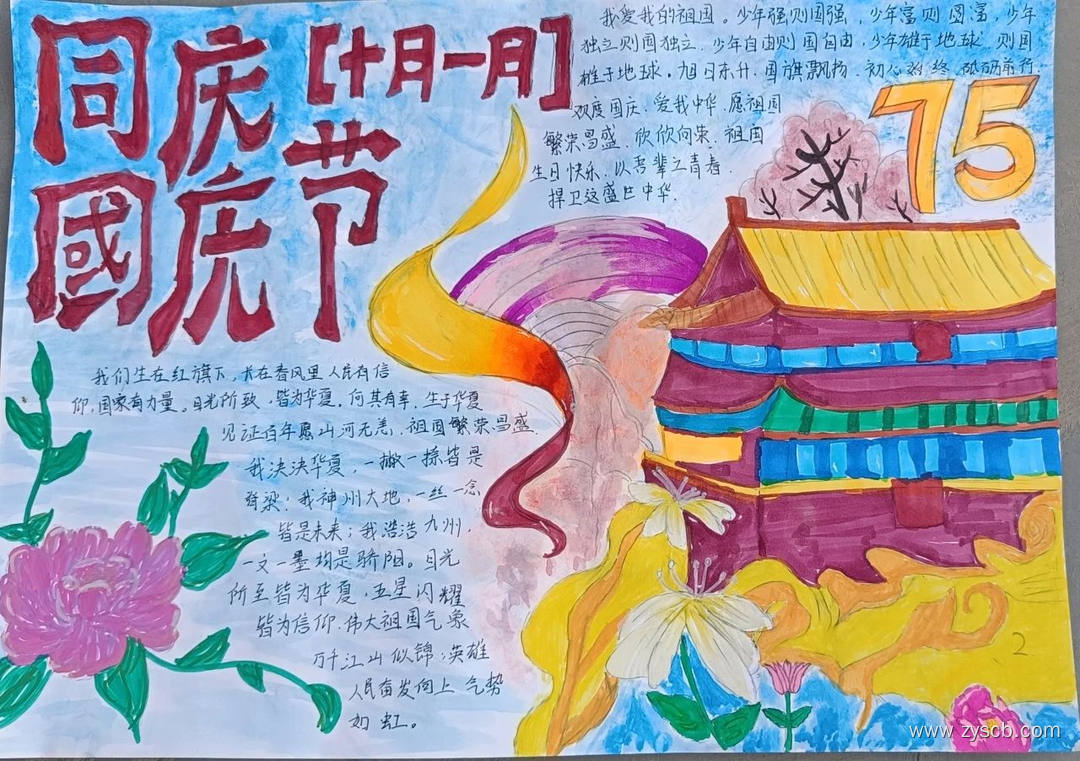 同庆
國庆节
【十月一月】
我爱我的祖国。少年强则国强，少年富则国富，少年
独立则国独立，少年自由则国自由，少年雄于地球，则国
雄于地球。旭日东升，国旗飘扬，初心始终，砥砺前行
欢度国庆，爱我中华，愿祖国
繁荣昌盛，欣欣向荣，祖国
生日快乐，以吾辈之青春，
捍卫这盛世中华.
75
我们生在红旗下，长在春风里，人民有信
仰，国家有力量。目光所致，皆为华夏。何其有幸，生于华夏
见证百年愿山河无恙，祖国繁荣昌盛.
我泱泱华夏，一撇一捺皆是
脊梁；我神州大地，一丝一念
皆是未来；我浩浩九州，
一文一墨均是骄阳。目光
所至皆为华夏，五星闪耀
皆为信仰.伟大祖国气象
万千江山似锦；英雄
人民奋发向上 气势
如虹。
2
www.zyscb.com